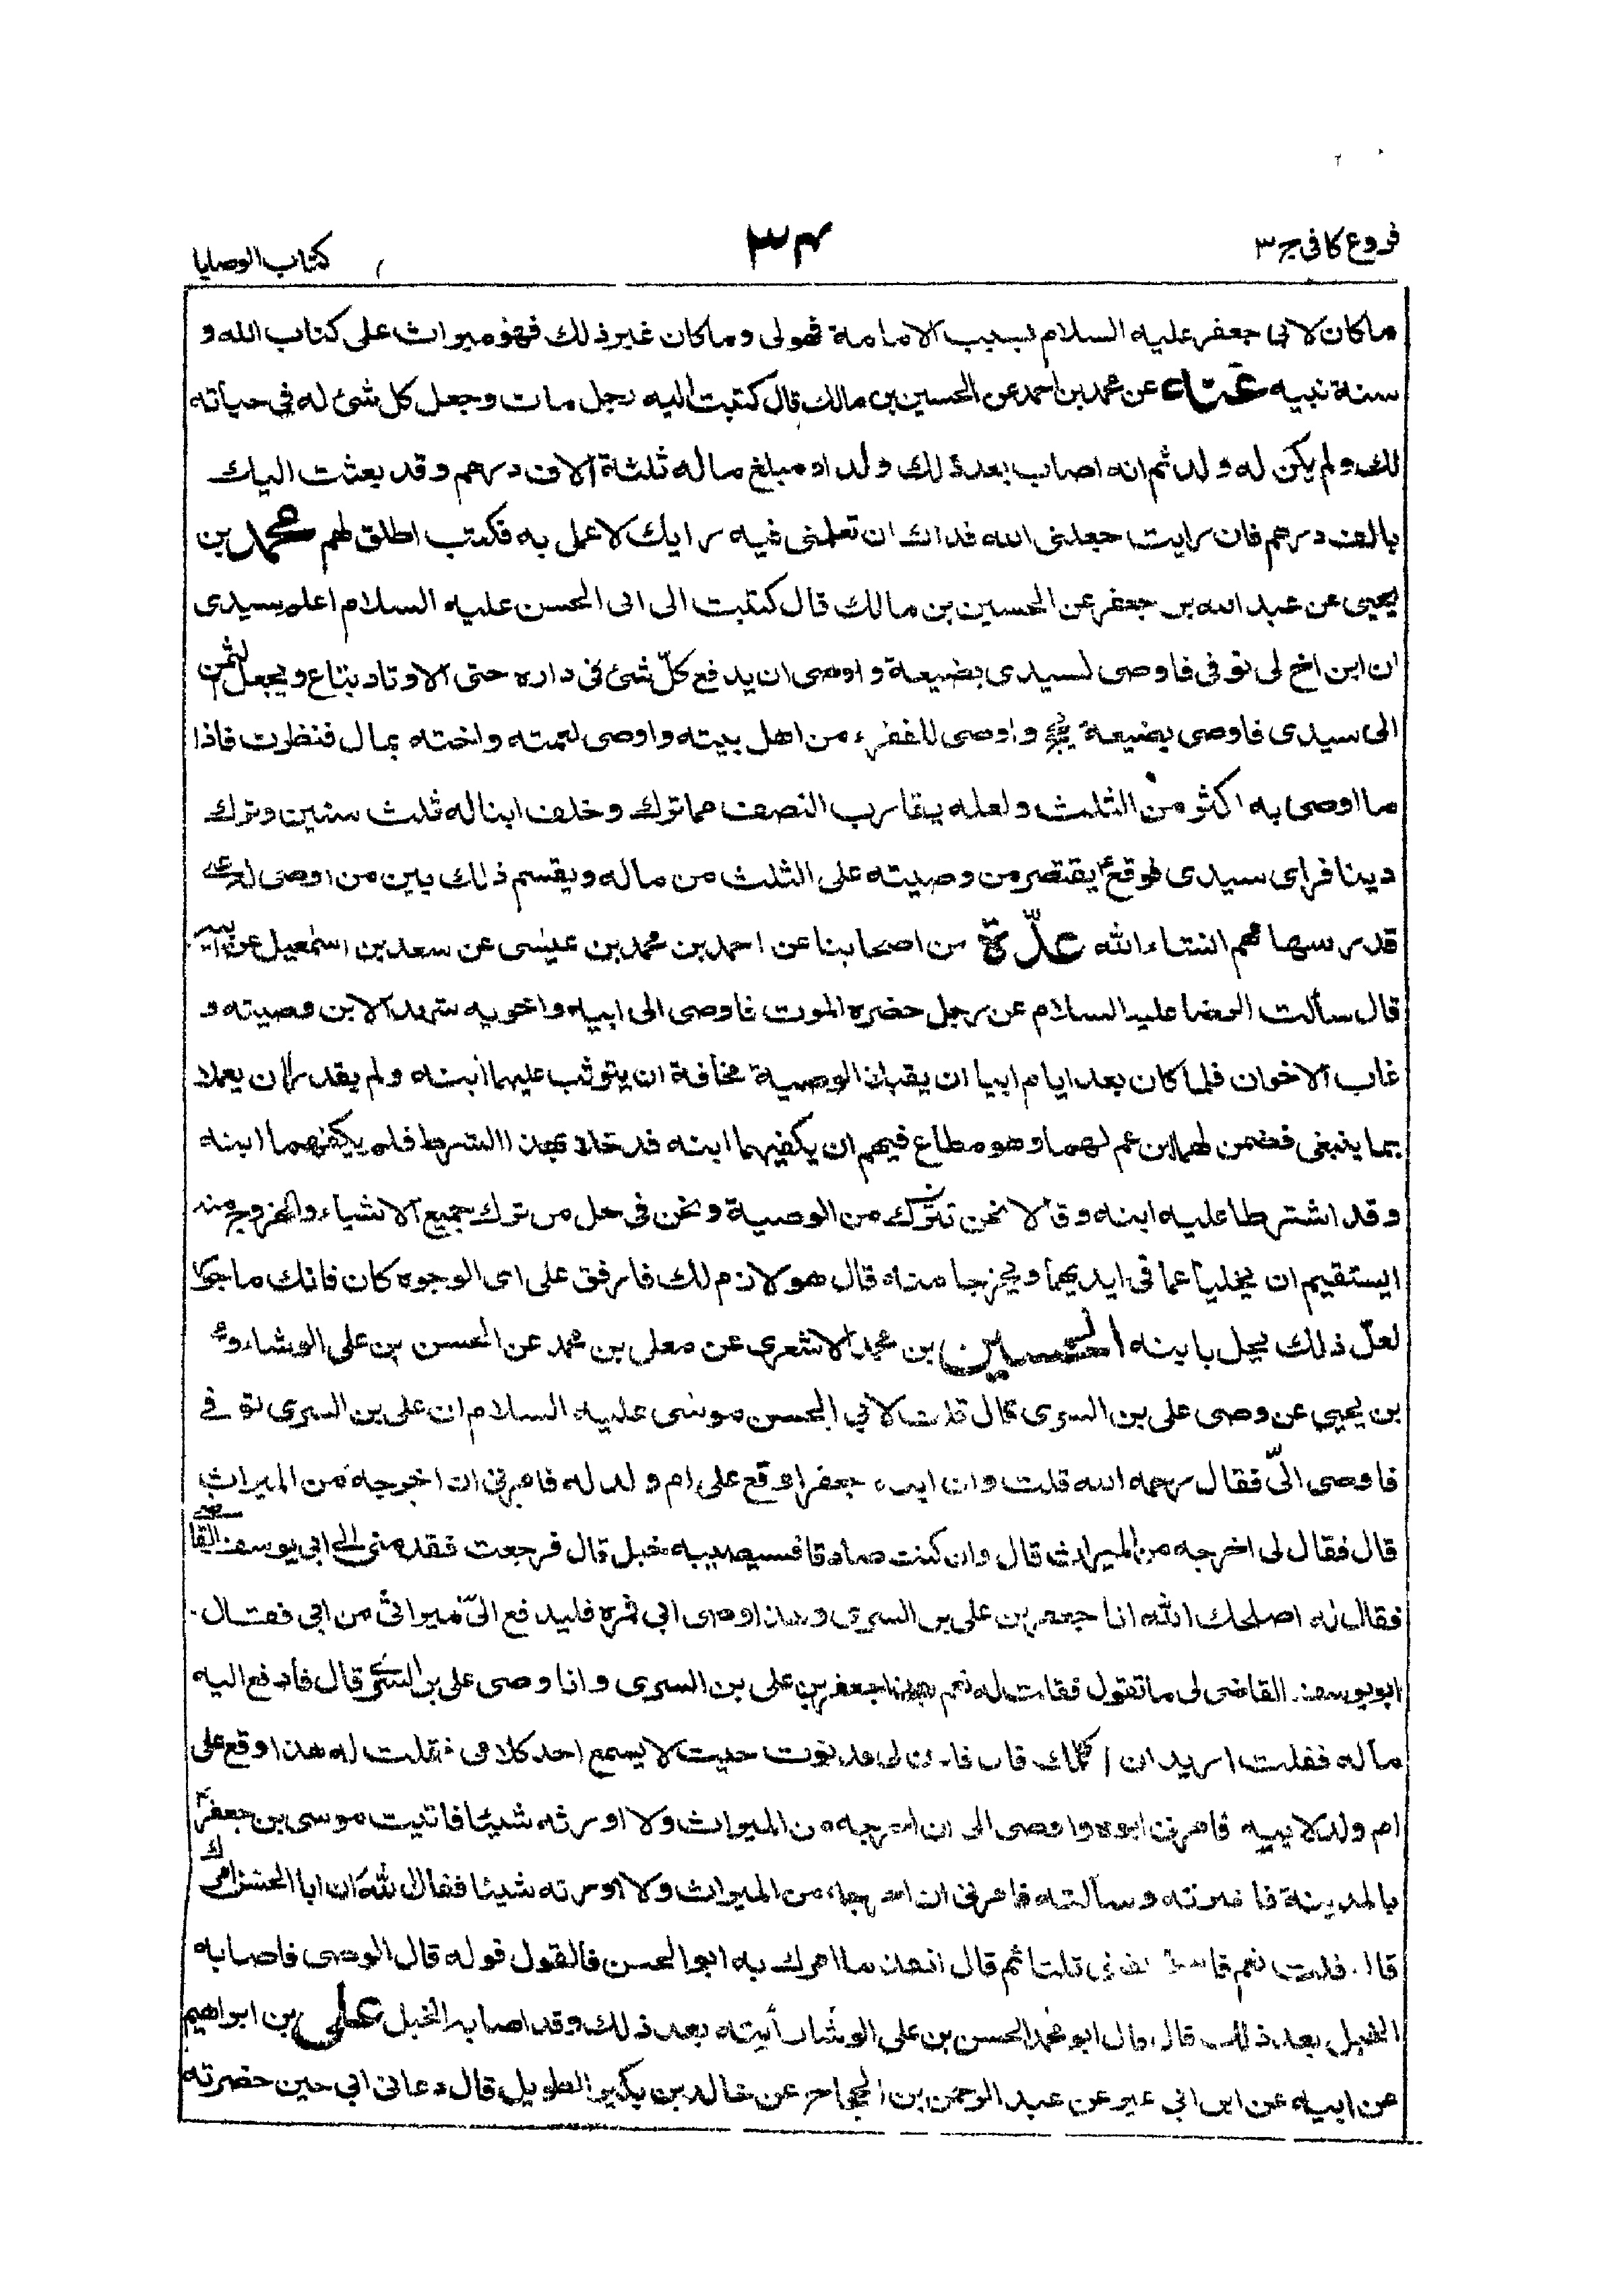 فروع كافى ج ٣
٣٤
كتاب الوصايا
ما كان لابى جعفر عليه السلام بسبب الامامة فهو لى وما كان غير ذلك فهو ميراث على كتاب الله و
سنة نبيه عنه عن محمد بن احمد عن الحسين بن مالك قال كتبت اليه رجل مات وجعل كل شئ له في حياته
لك ولم يكن له ولد ثم انه اصاب بعد ذلك ولدا ومبلغ ماله ثلثة آلاف درهم وقد بعثت اليك
بالف درهم فان رايت جعلنى الله فداك ان تعلمنى فيه رايك لاعمل به فكتب اطلق لهم محمد بن
يحيى عن عبد الله بن جعفر عن الحسين بن مالك قال كتبت الى ابى الحسن عليه السلام اعلم سيدى
ان ابن اخ لى توفى فاوصى لسيدى بضيعة و اوصى ان يدفع كلّ شئ فى داره حتى الاوتاد يباع ويجعل الثمن
الى سيدى فاوصى بضيعة و اوصى للفقراء من اهل بيته واوصى لعمته واخته بمال فنظرت فاذا
ما اوصى به اكثر من الثلث ولعله يقارب النصف مما ترك وخلف ابنا له ثلث سنين وترك
دينا فراى سيدى فوقعؑ يقتصر من وصيته على الثلث من ماله ويقسم ذلك بين من اوصى له على
قدر سهامهم انشاء الله عدّة من اصحابنا عن احمد بن محمد بن عيسى عن سعد بن اسمعيل عن ابيه
قال سألت الرضا عليه السلام عن رجل حضره الموت فاوصى الى ابنه واخويه شهد الابن وصيته و
غاب الاخوان فلما كان بعد ايام ابيا ان يقبلا الوصية مخافة ان يتوثب عليهما ابنه ولم يقدرا ان يعملا
بما ينبغى فضمن لهما ابن عم لهما وهو مطاع فيهم ان يكفيهما ابنه فدخلا بهذا الشرط فلم يكفهما ابنه
وقد اشترطا عليه ابنه وقالا نحن من الوصية ونحن فى حل من ترك جميع الاشياء والخروج منه
ايستقيم ان يخليا عما فى ايديهما ويخرجا منه قال هو لازم لك فارفق على اى الوجوه كان فانك ماجور
لعلّ ذلك يحل بابنه الحسين بن محمد الاشعرى عن معلى بن محمد عن الحسن بن على الوشاء و
بن يحيى عن وصى على بن السرى قال قلت لابى الحسن موسى عليه السلام ان على بن السرى توفى
فاوصى الىّ فقال رحمه الله قلت وان ابنه جعفرا وقع على ام ولد له فامرنى ان اخرجه من الميراث
قال فقال لى اخرجه من الميراث قال وان كنت صادقا فسيصيبه خبل قال فرجعت فقدمنى الى ابى يوسف القاضى
فقال له اصلحك الله انا جعفر بن على بن السرى وهذا وصى ابى فمره فليدفع الىّ ميراثى من ابى فقال
ابو يوسف القاضى لى ما تقول فقلت له نعم هذا جعفر بن على بن السرى وانا وصى على بن السرى قال فادفع اليه
ماله فقلت اريد ان اكلمك قال فادن لى فدنوت حيث لا يسمع احد كلامى فقلت له هذا وقع على
ام ولد لابيه فامرنى ابوه واوصى الى ان اخرجه من الميراث ولا اورثه شيئا فاتيت موسى بن جعفرؑ
بالمدينة فاخبرته وسألته فامرنى ان اخرجه من الميراث ولا اورثه شيئا فقال الله ان ابا الحسن امرك
قال قلت نعم ثلثا ثم قال انفذ ما امرك به ابو الحسن فالقول قوله قال الوصى فاصابه
الخبل بعد ذلك قال قال ابو محمد الحسن بن على الوشا رأيته بعد ذلك وقد اصابه الخبل على بن ابراهيم
عن ابيه عن ابن ابى عمير عن عبد الرحمن بن الحجاج عن خالد بن بكير الطويل قال دعانى ابى حين حضرته